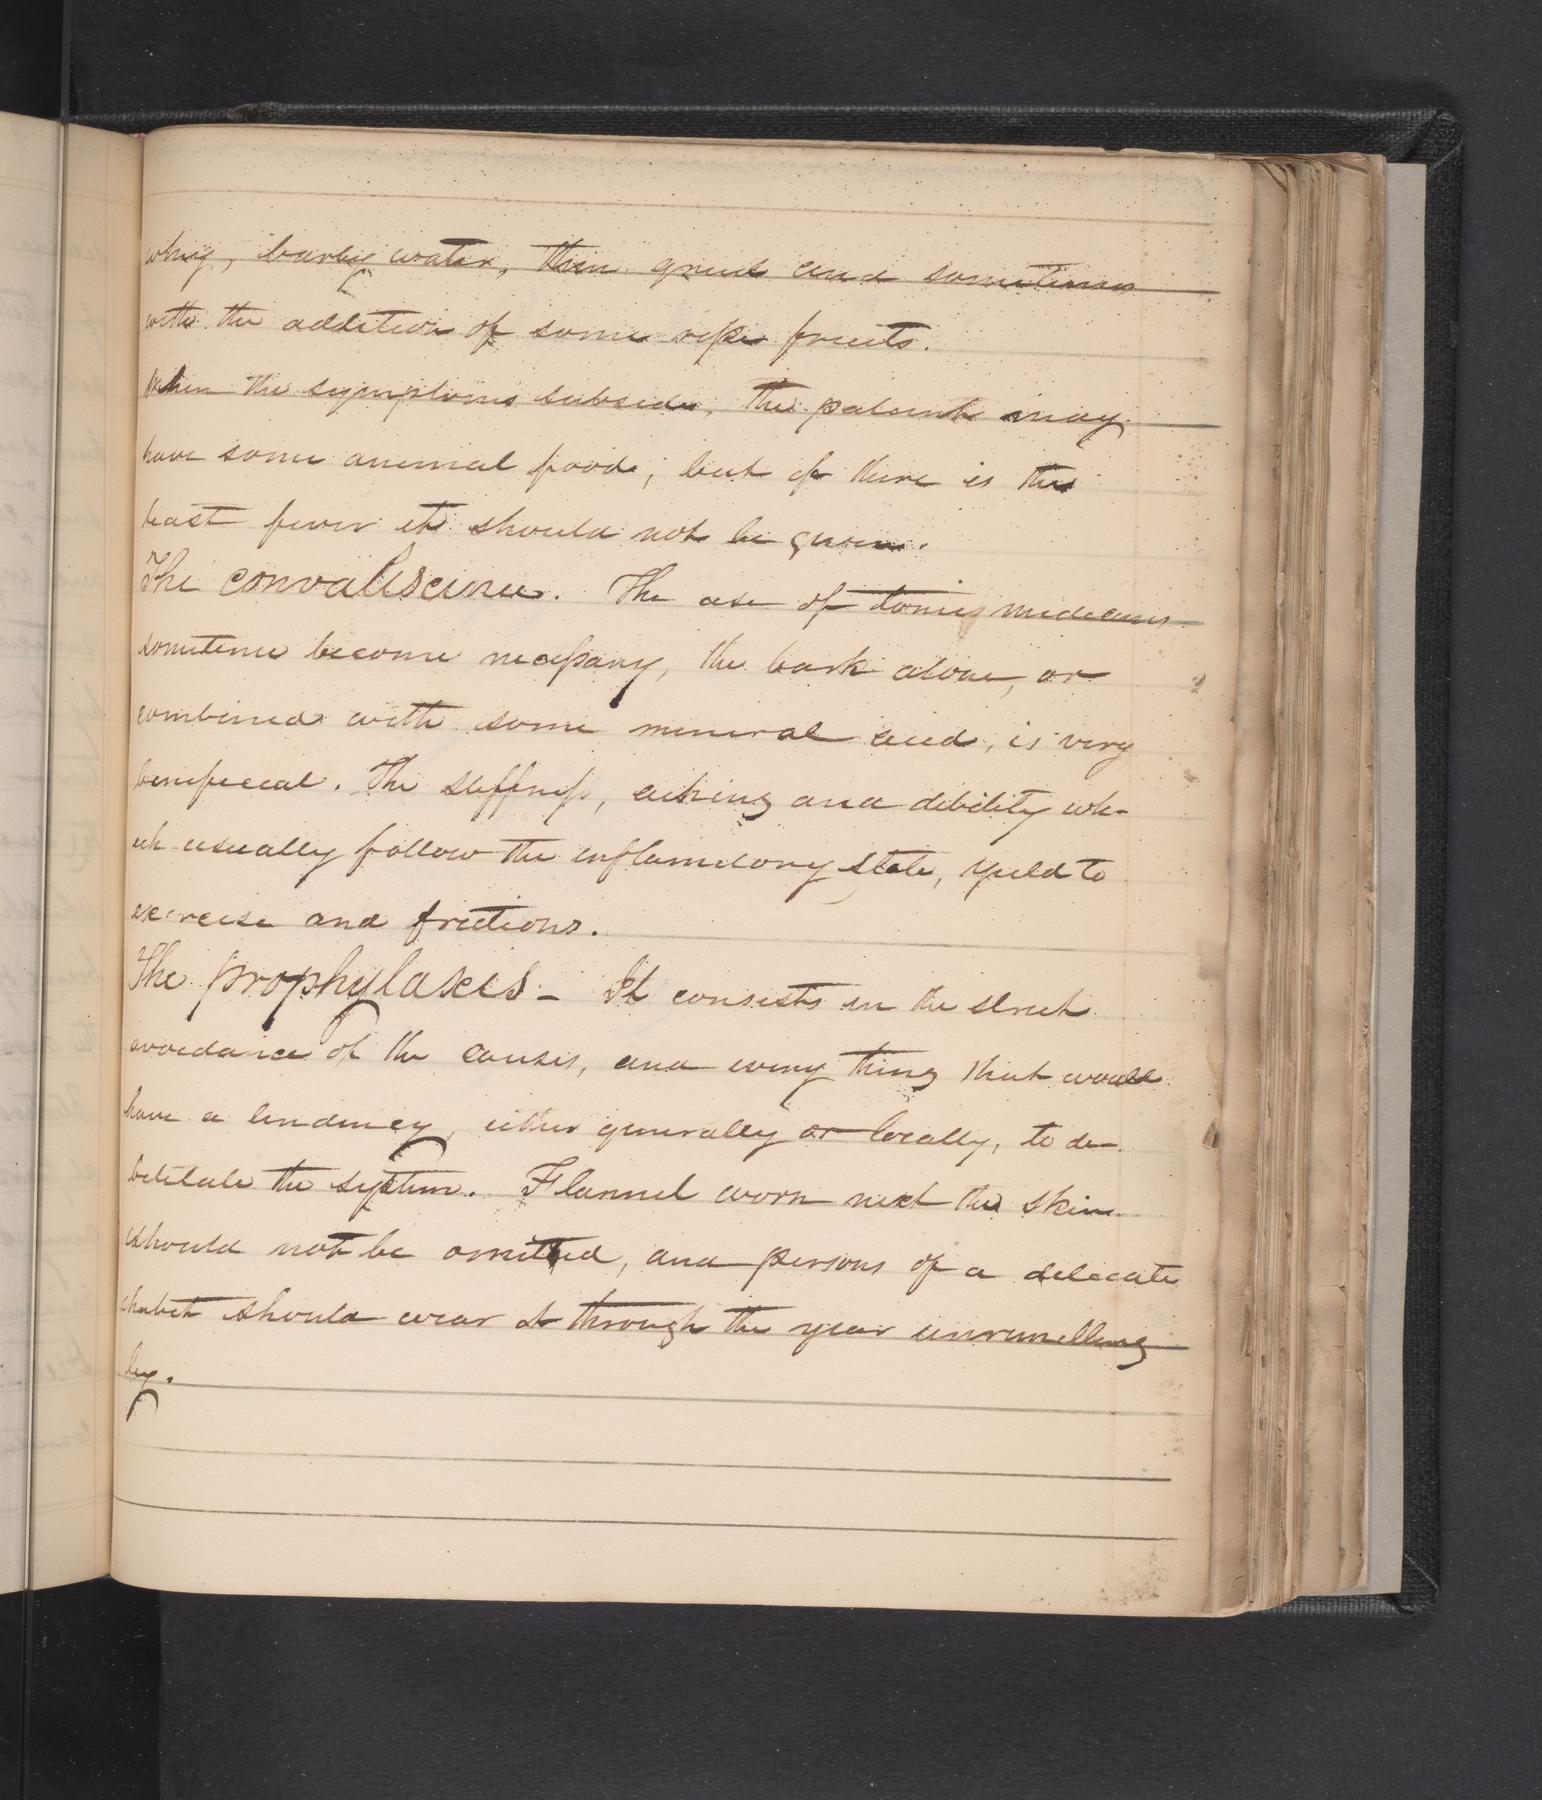 whey, barley water, thin gruel and sometimes
with the addition of some ripe fruits.
When the symptoms subside, the patient may
have some animal food; but if there is the
least fever it should not be given.
The convaliscence. The use of tonics medecines
sometime become necessary, the bark alone, or
combined with some mineral acid, is very
beneficial. The stiffness, aching and debility wh-
ich usually follow the inflamatory state, yield to
exercise and frictions.
The prophylaxis - It consists in the strict
avoidance of the causes, and every thing that would
have a tendency, either generally or locally, to de
bilitate the system. Flannel worn next the skin
should not be omitted, and persons of a delecate
habit should wear it through the year
ly.